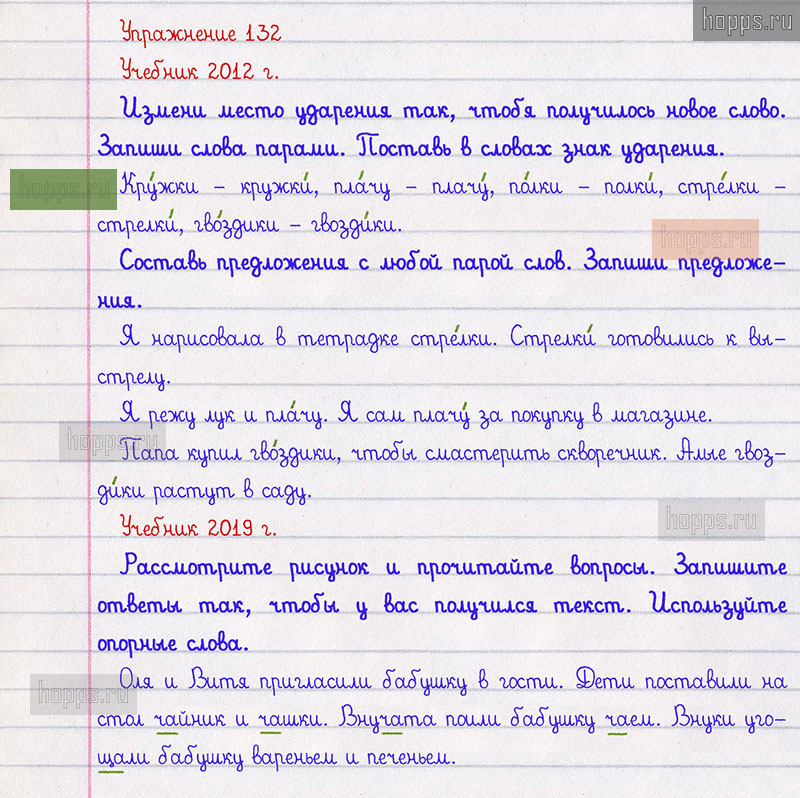 hopps.ru
Упражнение 132
Учебник 2012 г.
Измени место ударения так, чтобя получилось новое слово.
Запиши слова парами. Поставь в словах знак ударения.
hopps.ru
Кру́жки – кружки́, пла́чу – плачу́, по́лки – полки́, стре́лки –
стрелки́, гво́здики – гвозди́ки.
hopps.ru
Составь предложения с любой парой слов. Запиши предложе-
ния.
Я нарисовала в тетрадке стре́лки. Стрелки́ готовились к вы-
стрелу.
Я режу лук и пла́чу. Я сам плачу́ за покупку в магазине.
hopps.ru
Папа купил гво́здики, чтобы смастерить скворечник. Алые гвоз-
ди́ки растут в саду.
hopps.ru
Учебник 2019 г.
Рассмотрите рисунок и прочитайте вопросы. Запишите
ответы так, чтобы у вас получился текст. Используйте
опорные слова.
Оля и Витя пригласили бабушку в гости. Дети поставили на
hopps.ru
стол чайник и чашки. Внучата поили бабушку чаем. Внуки уго-
щали бабушку вареньем и печеньем.